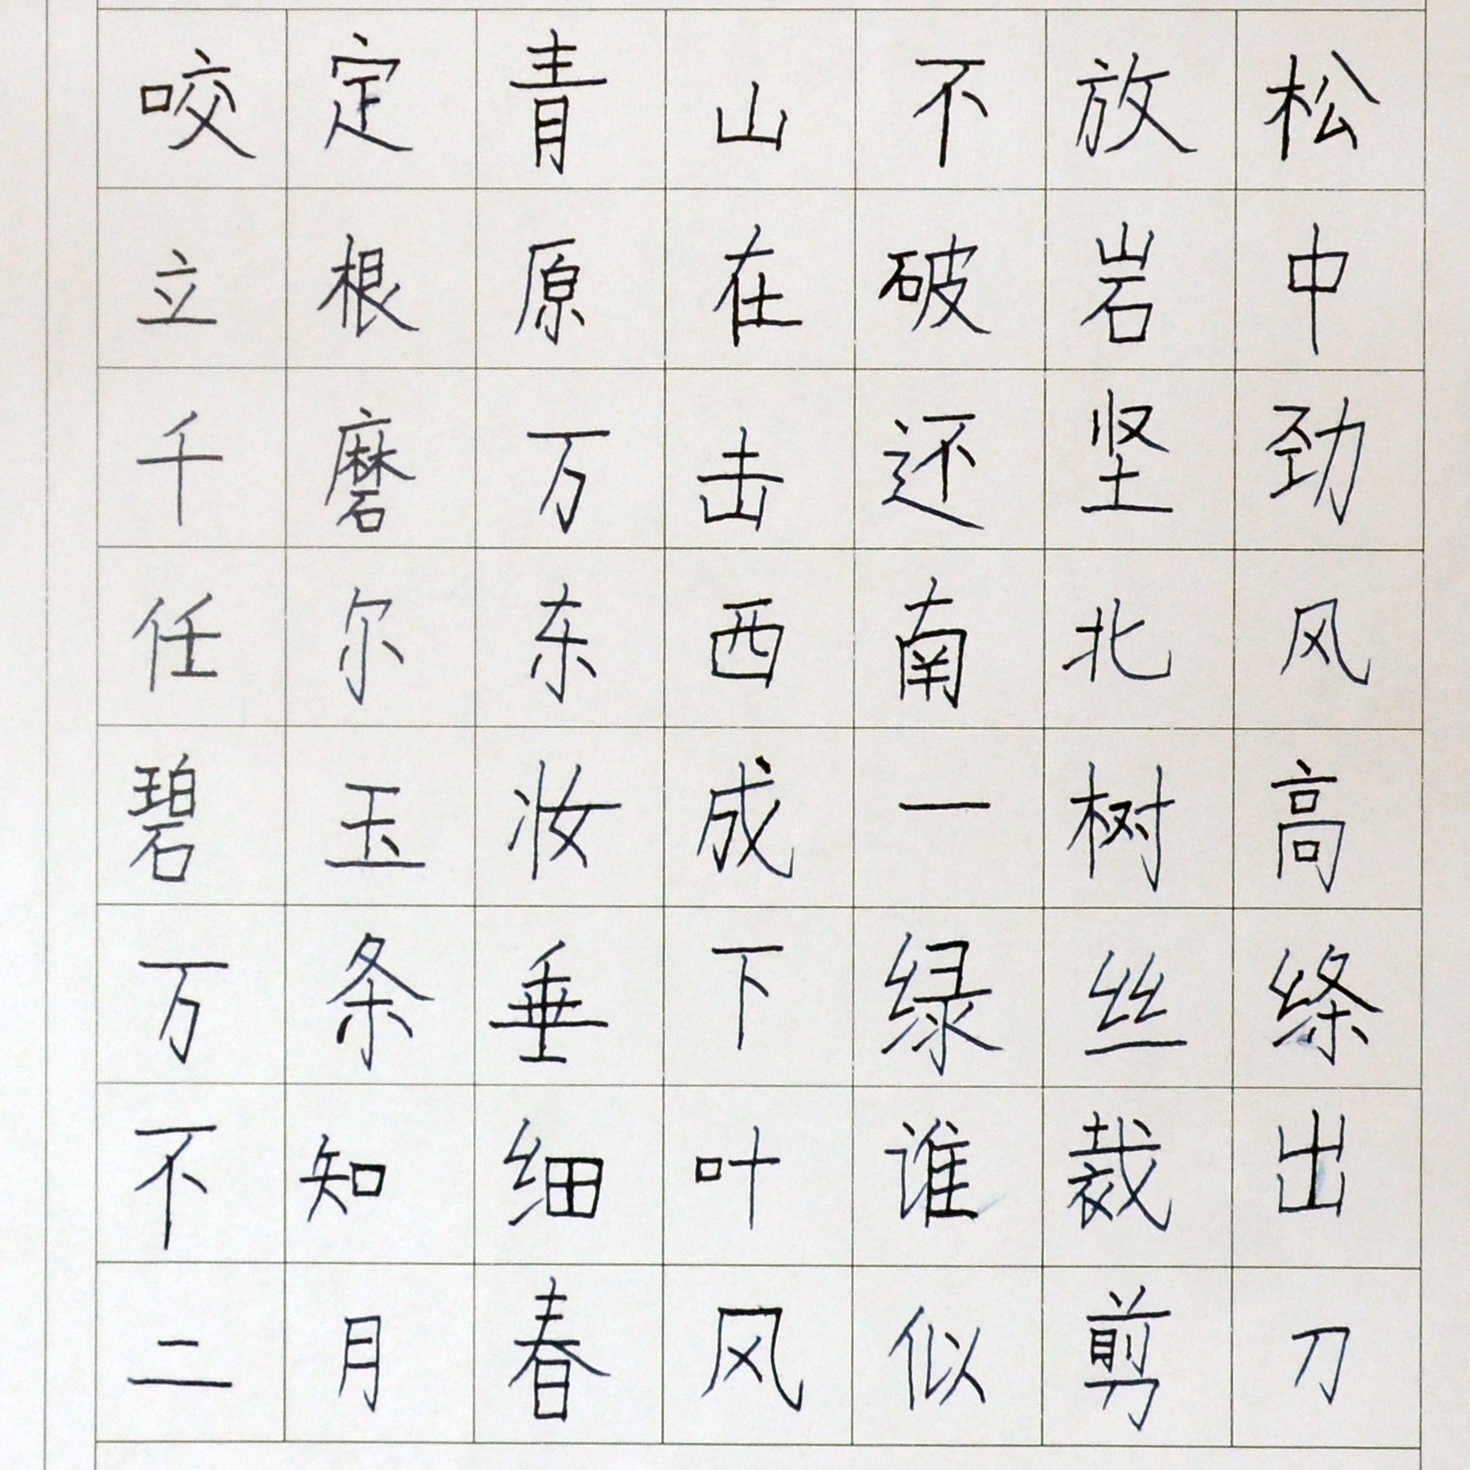 咬定青山不放松
立根原在破岩中
千磨万击还坚劲
任尔东西南北风
碧玉妆成一树高
万条垂下绿丝绦
不知细叶谁裁出
二月春风似剪刀